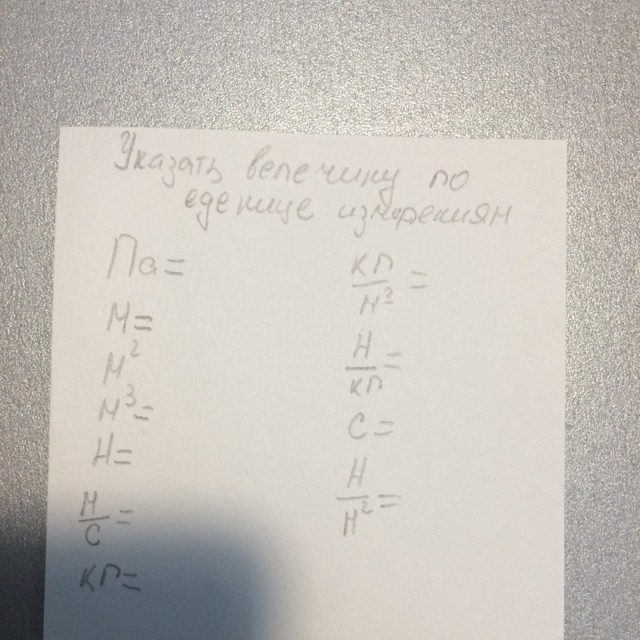 Указать велечину по
еденице измерениям
Па=
М=
М²
М³=
Н=
М/С=
КГ=
КГ/М³=
Н/КГ=
С=
Н/М²=